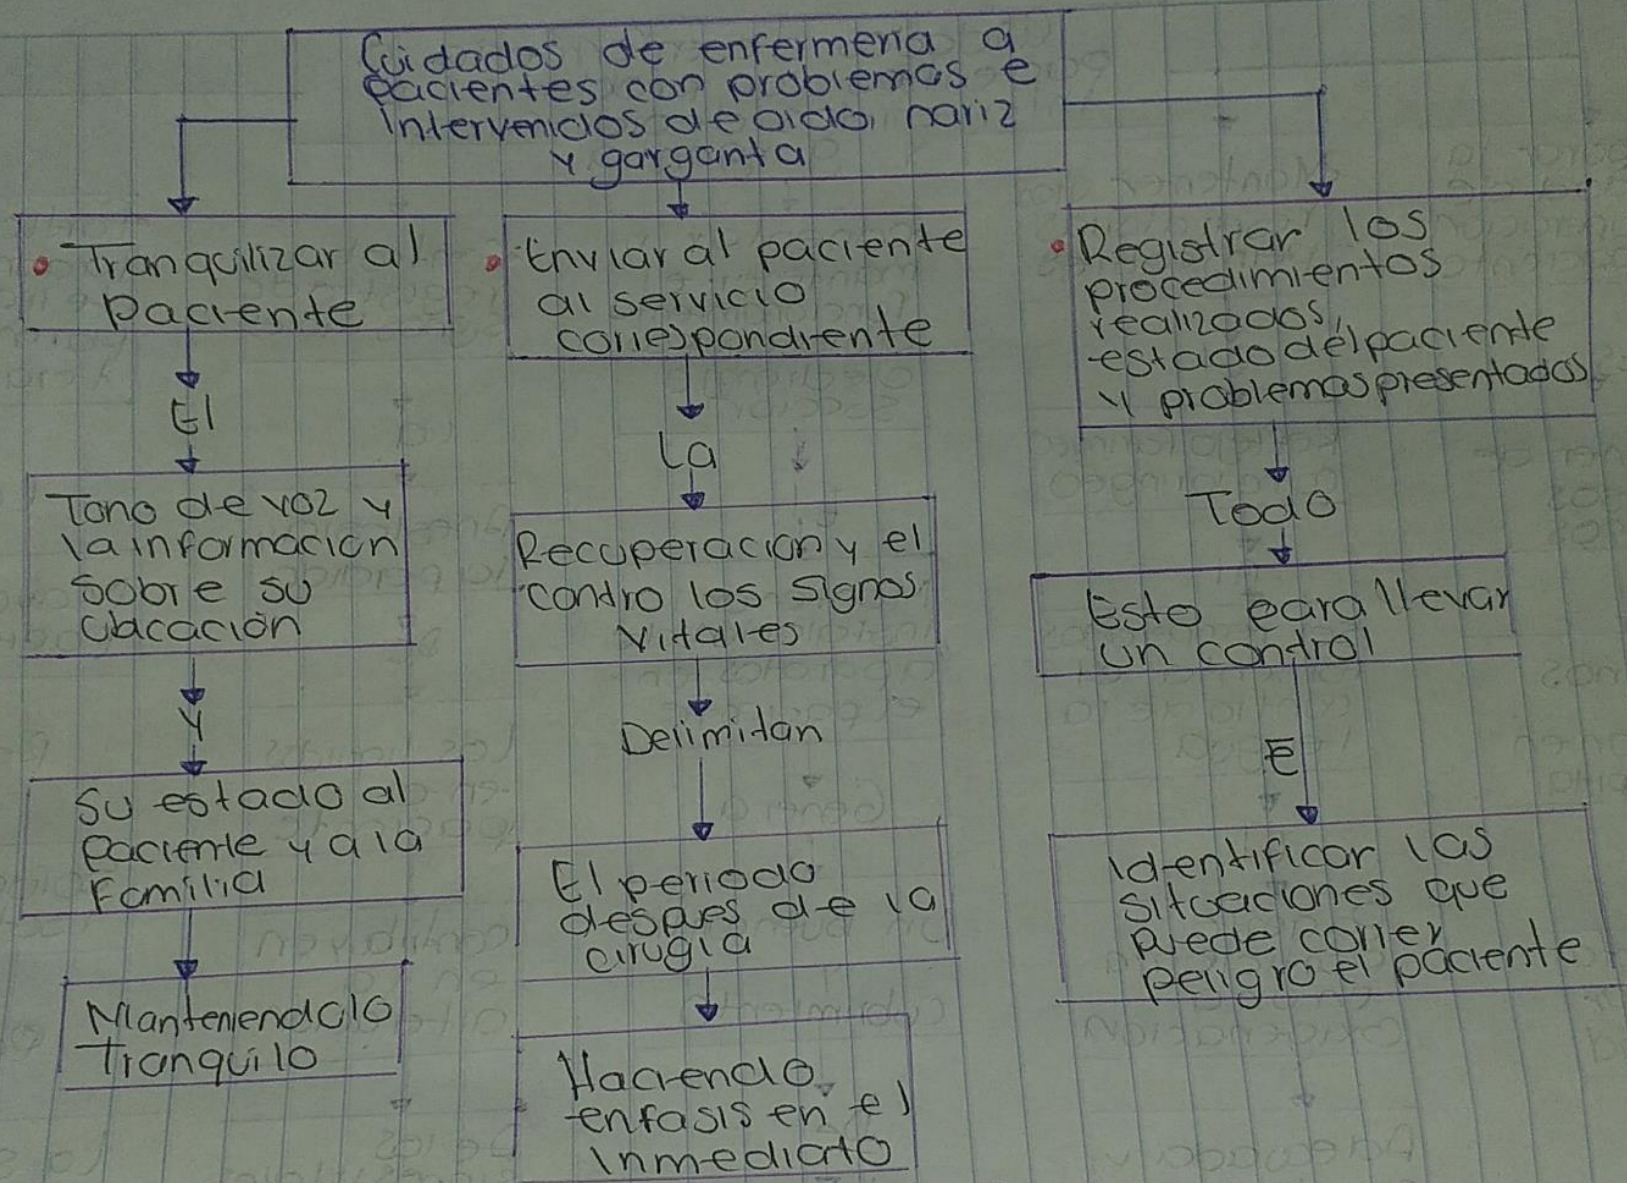 Cuidados de enfermeria a
pacientes con problemas e
intervenidos de oido, nariz
y garganta
• Tranquilizar al
paciente
El
Tono de voz y
la informacion
sobre su
ubicación
Y
Su estado al
paciente y a la
Familia
Manteniendolo
Tranquilo
• Enviar al paciente
al servicio
correspondiente
La
Recuperacion y el
contro los signos
vitales
Delimitan
El periodo
despues de la
cirugia
Haciendo
enfasis en el
inmediato
• Registrar los
procedimientos
realizados,
estado del paciente
y problemas presentados
Todo
Esto para llevar
un control
E
Identificar las
situaciones que
puede correr
peligro el paciente